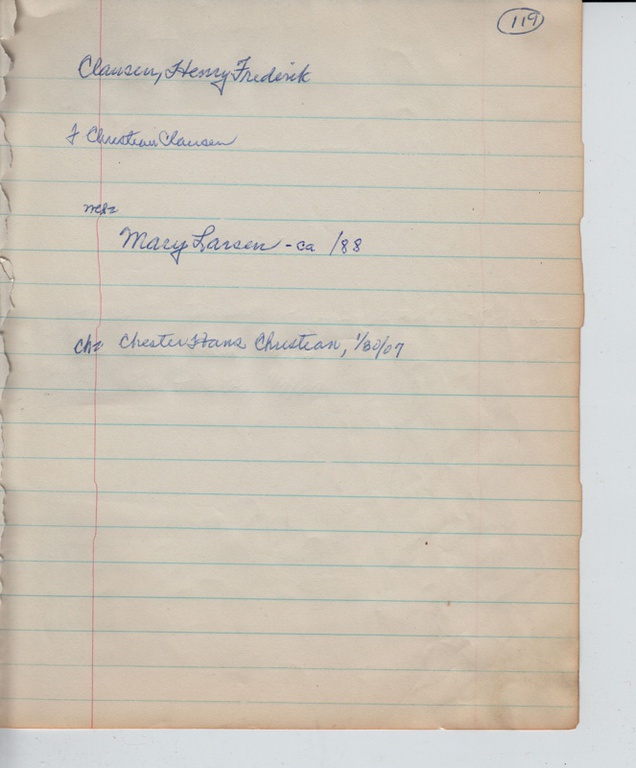 119
Clausen, Henry Frederik
f Christian Clausen
Mary Larsen - ca /88
ch: Chester Hans Christian, 1/30/07